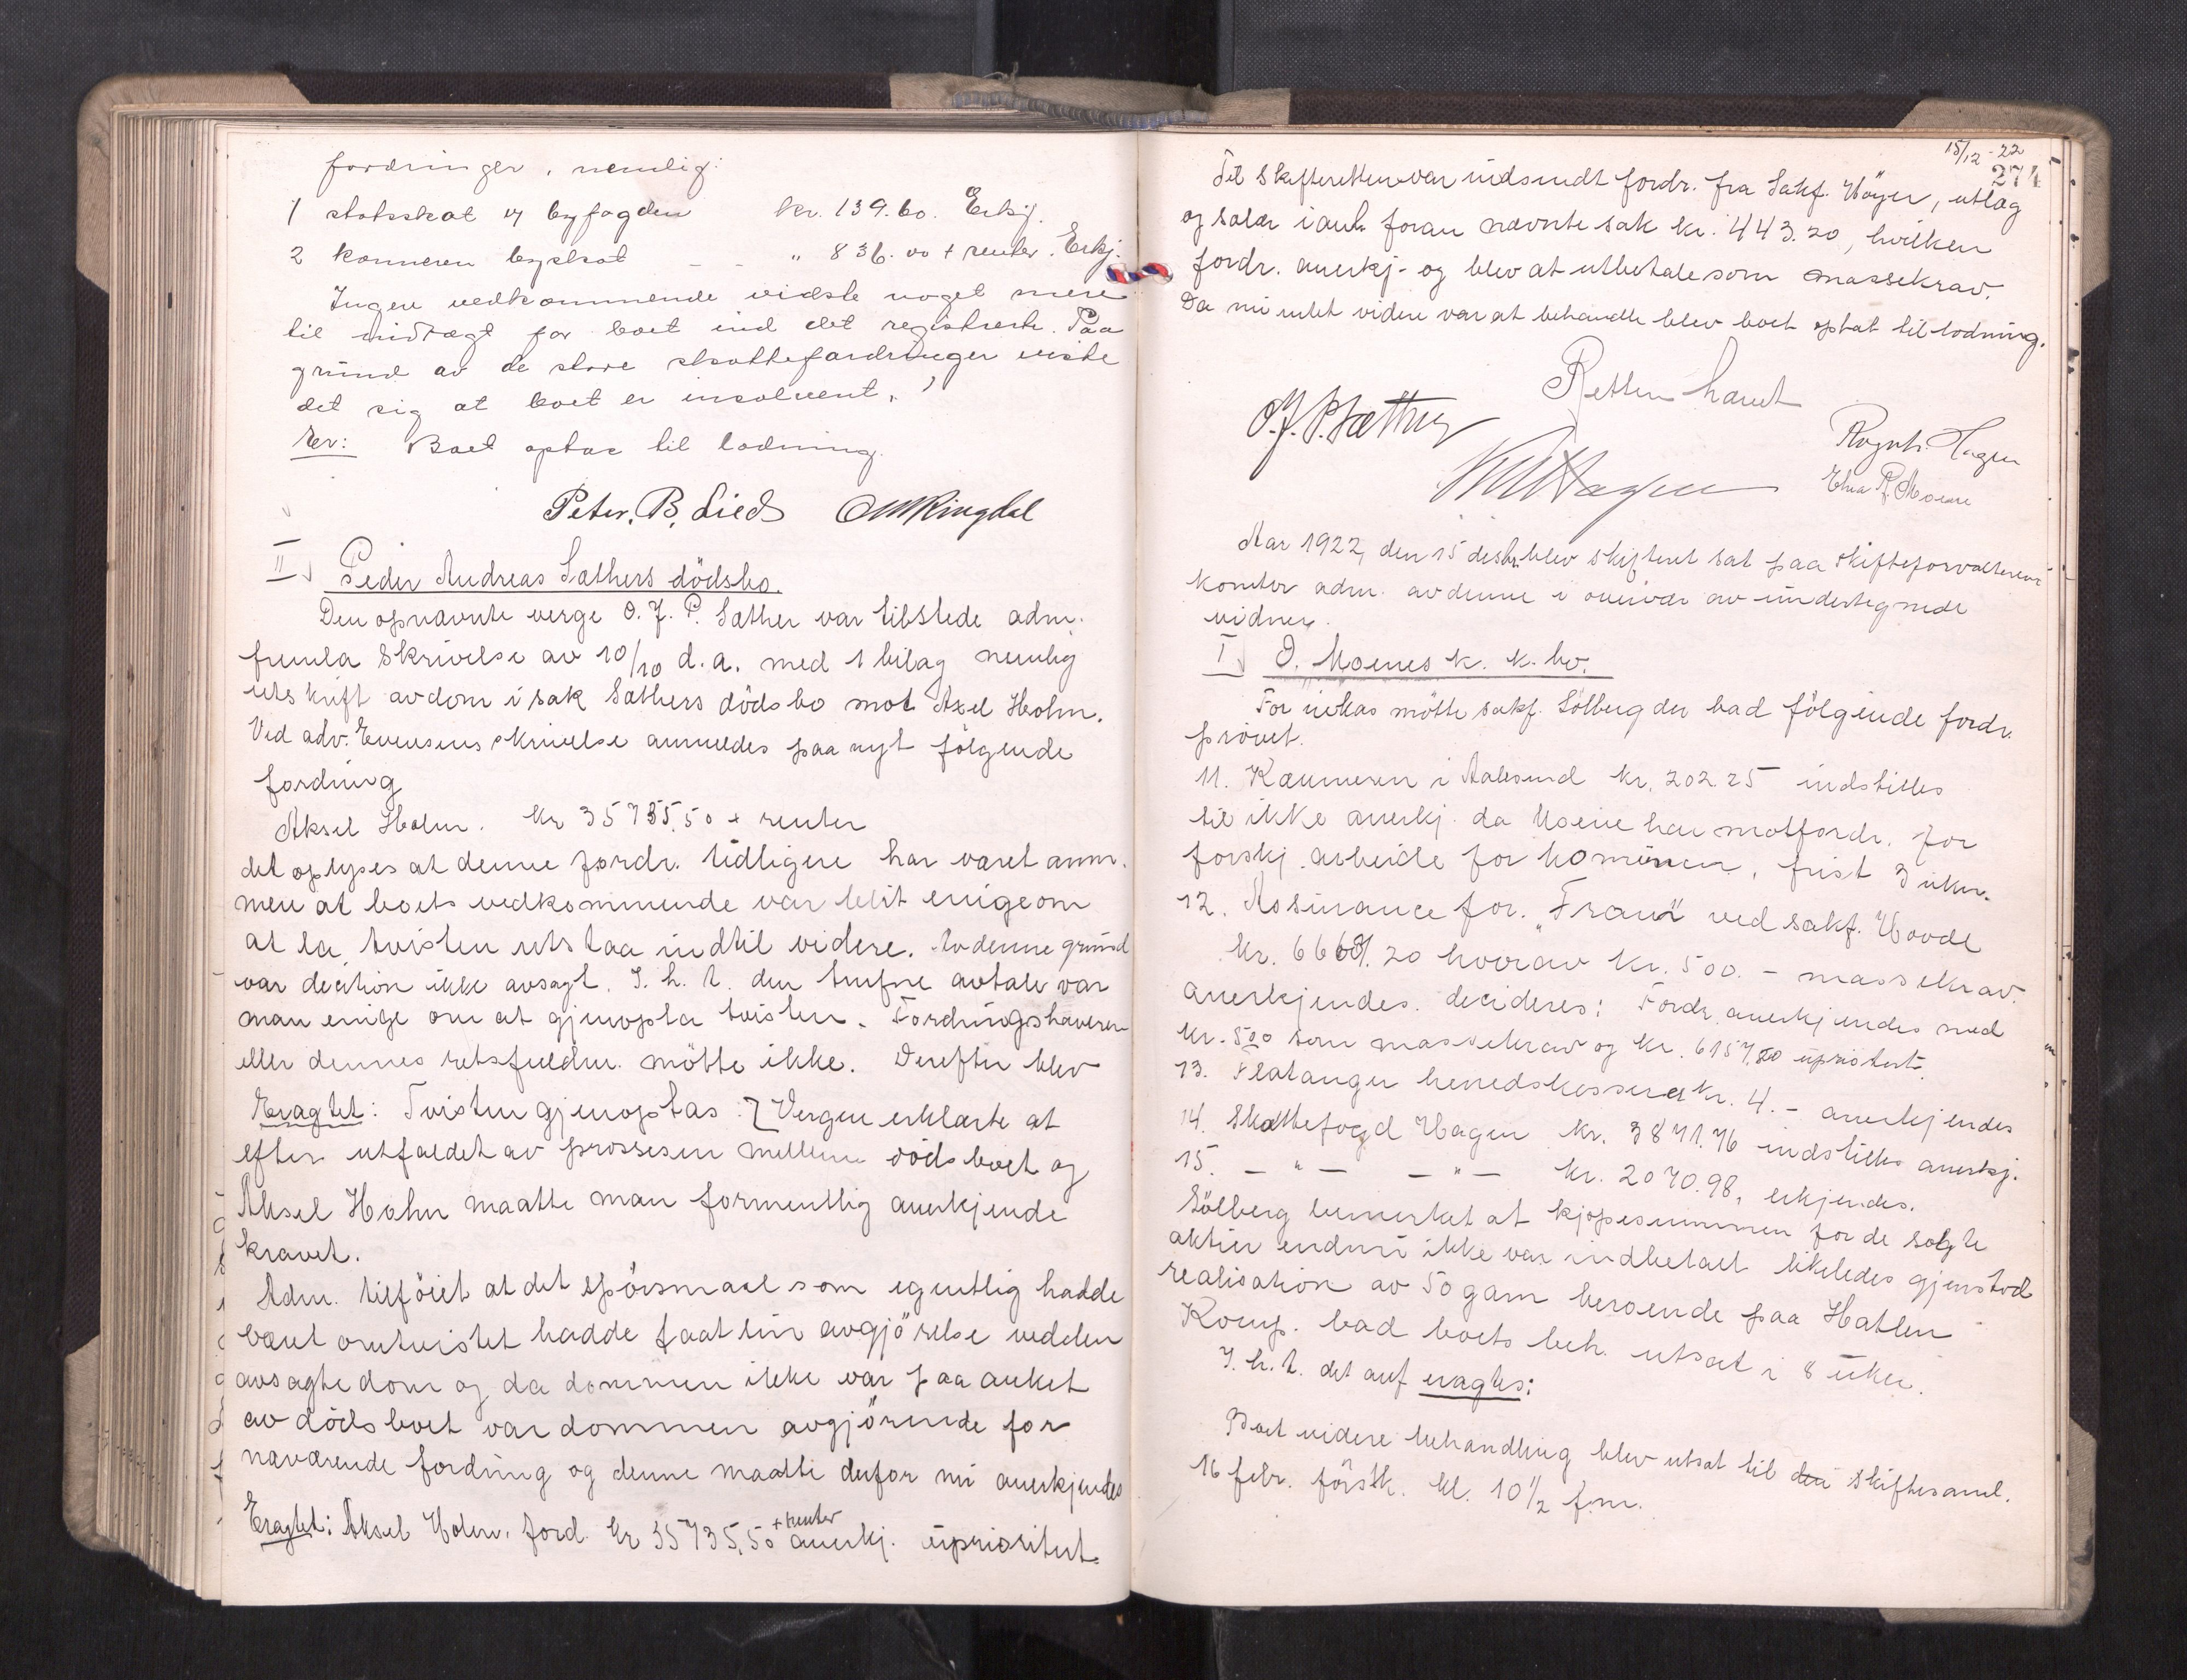 fordringer, nemlig:
1 statsskat v/ byfogden kr. 139.60. Erkj.
2 kæmneren byskat - - " 836.00 + renter. Erkj.
Ingen vedkommende vidste noget mere
til indtægt for boet end det registrerte. Paa
grund av de store skattefordringer viste
det sig at boet er insolvent.
Er: Boet optas til lodning.
Peter. B. Lied OMRingdal
II Peder Andreas Sæthers dödsbo.
Den opnævnte verge O. J. P. Sæther var tilstede adm.
fremla Skrivelse av 10/10 d.a. med 1 bilag nemlig
utskrift av dom i sak Sæthers dödsbo mot Axel Holm.
Ved adv. Evensens skrivelse anmeldes paa nyt fölgende
fordring
Aksel Holm. kr 35735,50 + renter
det oplyses at denne fordr. tidligere har været anm.
men at boets vedkommende var blit enige om
at la tvisten utstaa indtil videre. Av denne grund
var decition ikke avsagt. I. h. t. den trufne avtale var
man enige om at gjenopta tvisten. Fordringshaveren
eller dennes retsfuldm. mötte ikke. Derefter blev
Eragtet: Tvisten gjenoptas. Vergen erklærte at
efter utfaldet av prossesen mellem dödsboet og
Aksel Holm maatte man formentlig anerkjende
kravet.
Adm. tilföiet at det spörsmaal som egentlig hadde
været omtvistet hadde faat sin avgjörelse ved den
avsagte dom og da dommen ikke var paaanket
av dödsboet var dommen avgjörende for
nærværende fordring og denne maatte derfor nu anerkjendes
Eragtet: Aksel Holm. ford. kr 35735,50 + renter anerkj. uprioritert.
15/12-22
274
Til Skifteretten var indsendt fordr. fra Sakf. Höyer, utlæg
og salær i anl. foran nævnte sak kr. 443.20, hvilken
fordr. anerkj. og blev at utbetale som massekrav.
Da nu intet videre var at behandle blev boet optat til lodning.
Retten hævet
O.J.P.Sæther
Ragnh. Hagen
Elna R. Moene
Aar 1922, den 15 desbr. blev skifteret sat paa skifteforvalterens
kontor adm. av denne i overvær av undertegnede
vidner.
I O. Moenes k. k. bo.
For inkas mötte sakf. Sölberg der bad fölgende fordr.
prövet.
11. Kæmneren i Aalesund kr. 202.25 indstilles
til ikke anerkj. da Moene har motfordr. for
forskj. arbeide for komunen, frist 3 uker.
12. Assurance for. "Fram" ved sakf. Hovde
kr. 6657.20 hvorav kr. 500.- massekrav.
anerkjendes. decideres: Fordr. anerkjendes med
kr. 500 som massekrav og kr. 6157,20 uprioritert.
13. Flatanger herredskasserer kr. 4.- anerkjendes
14. Skattefogd Hagen kr. 3871.76 indstilles anerkj.
15. - " - - " - kr. 2070.98, erkjendes.
Sölberg bemerket at kjöpesummen for de solgte
aktier endnu ikke var indbetalt likeledes gjenstod
realisation av 50 garn beroende paa Hatlen
Komp. bad boets beh. utsat i 8 uker.
I. h. t. det anf eragtes:
Boet videre behandling blev utsat til den skiftesaml.
16 febr. förstk. kl. 10 1/2 fm.